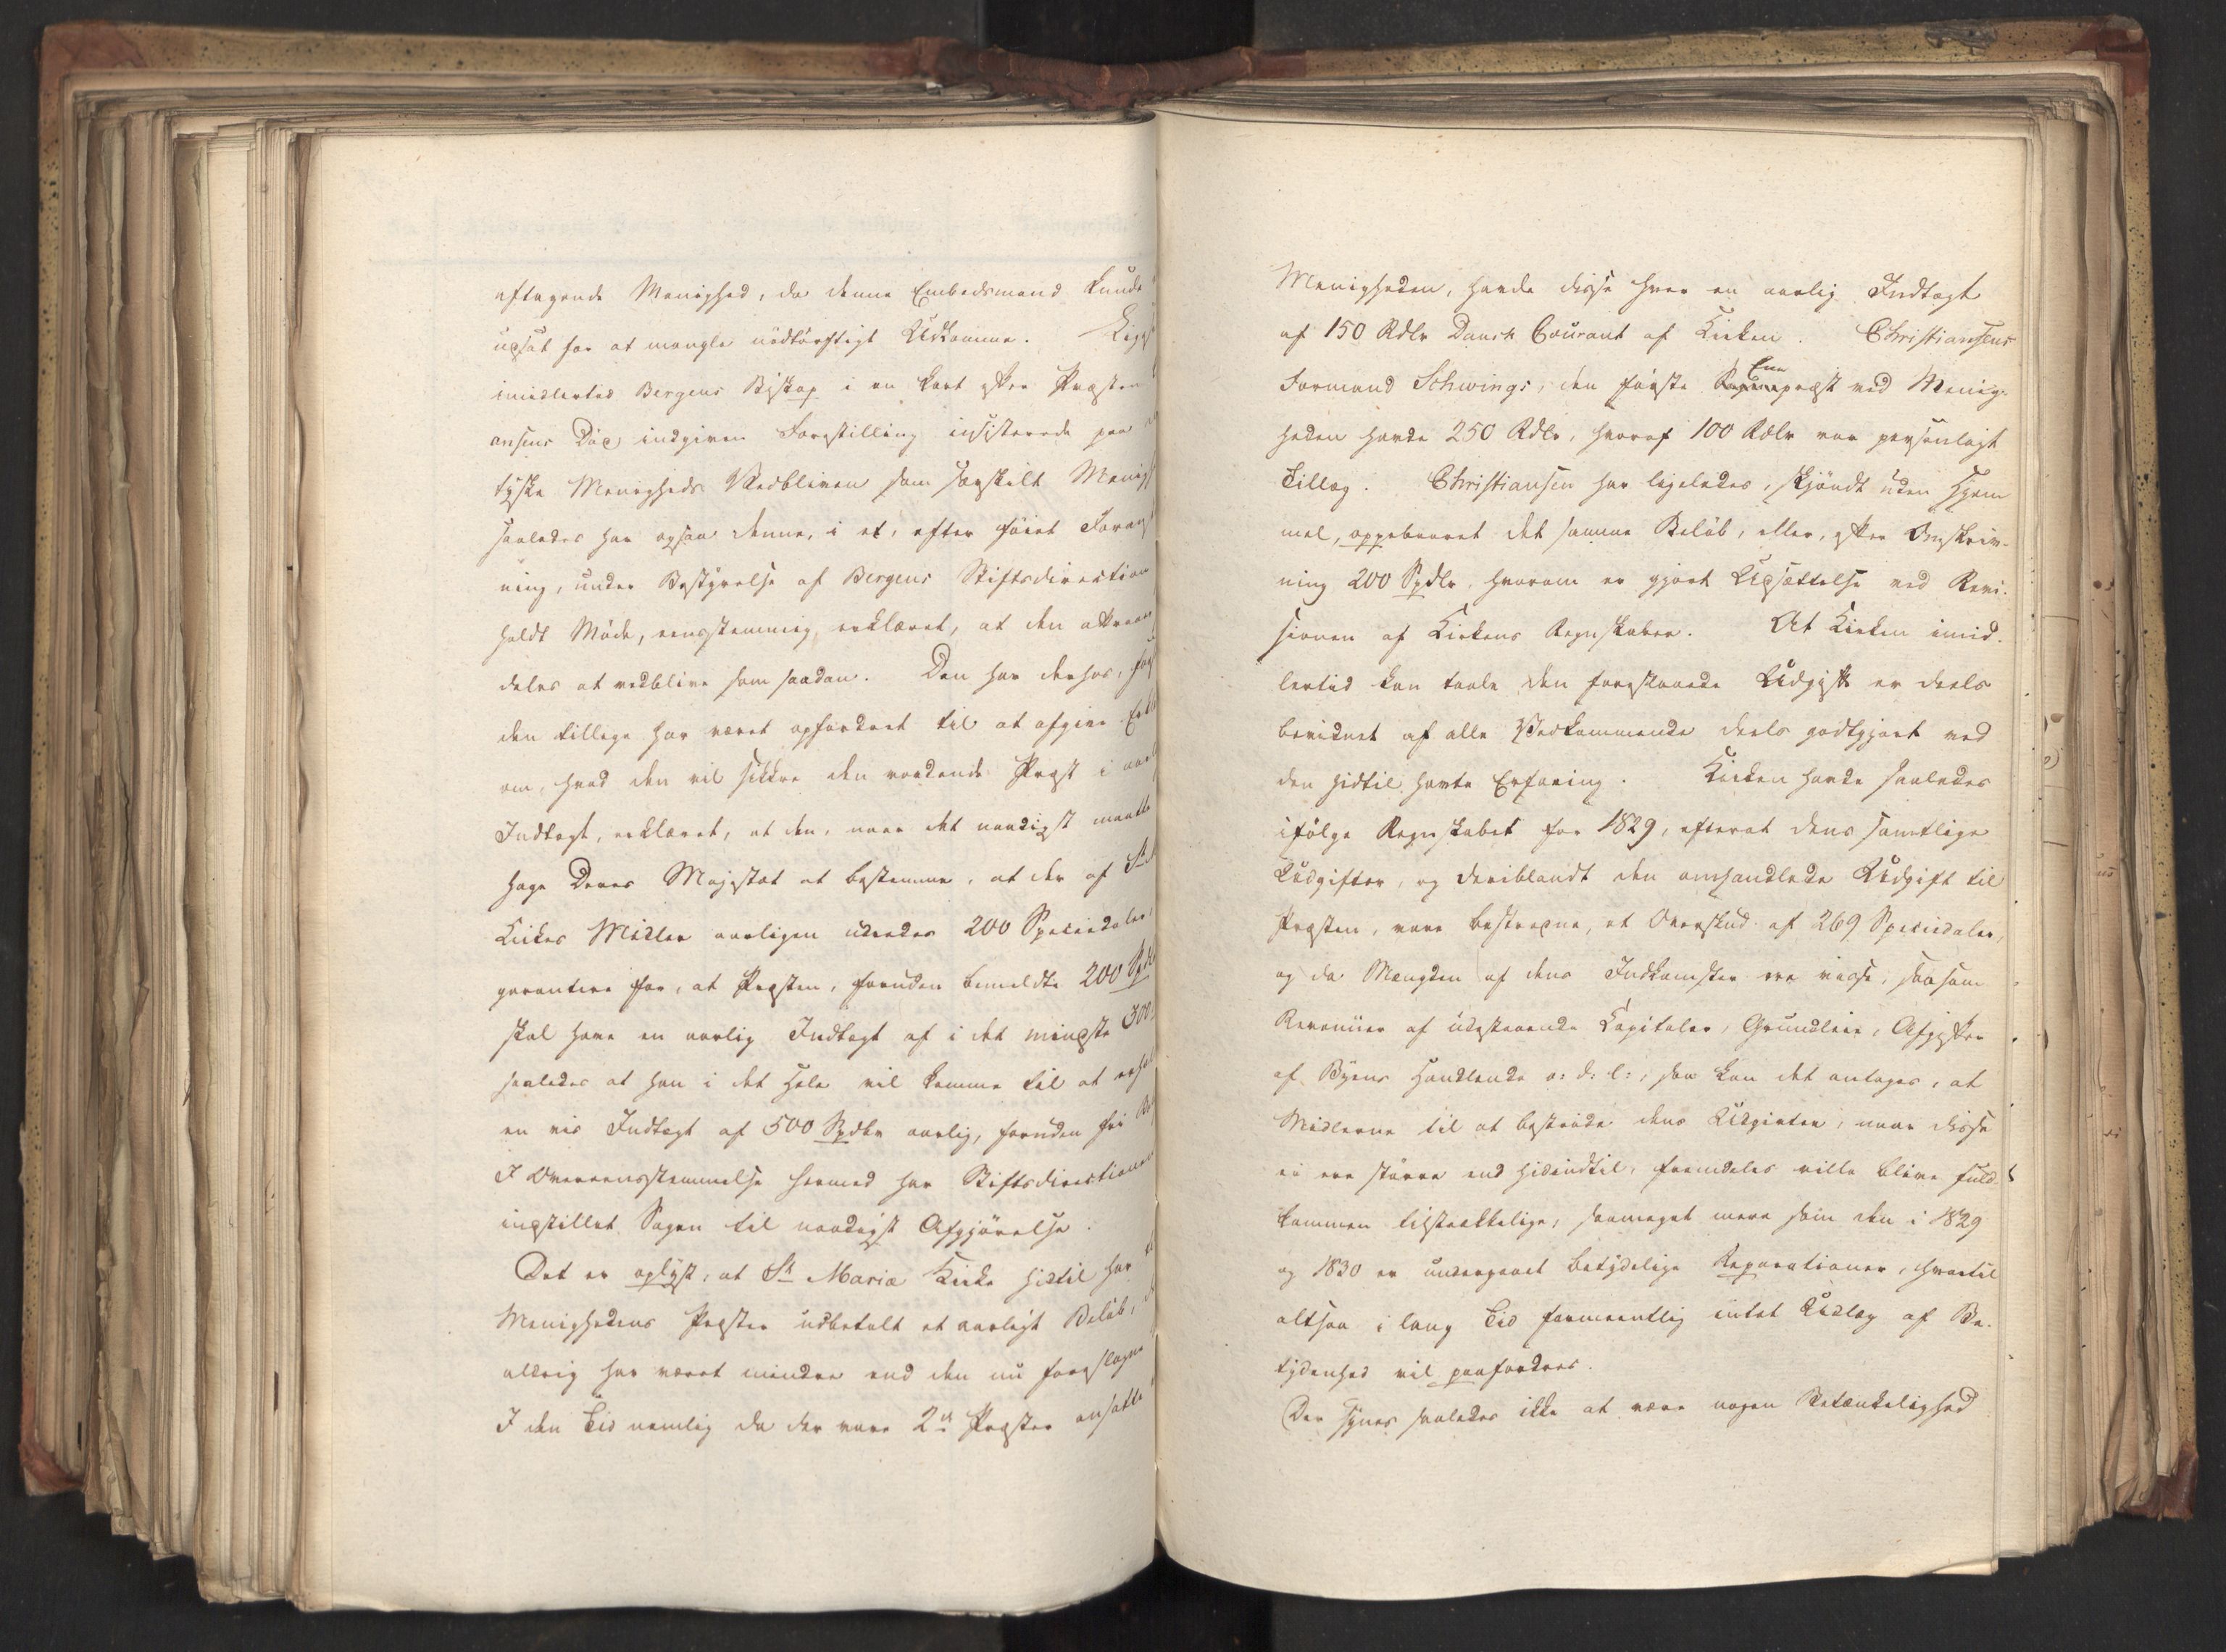 aftagende Menighed, da denne Embedsmand kunde
udsat for at mangle nødtørftigt Udkomme. Ligesom
imidlertid Bergens Biskop i en kort efter Præsten
ansens Död indgiven Forestilling insisterede paa
tydske Menigheds Vedbliven som særskilt Menigh
saaledes har ogsaa denne, i et, efter föiet Foran
ning, under Bestyrelse af Bergens Stiftsdirection
holdt Möde, eensstemmig erklæret, at den attraaer
deles at vedblive som saadan. Den har derhos,
den tillige har været opfordret til at afgive Erkl
om, hvad den vil sikkre den vordende Præst i aarl
Indtægt, erklæret, at den, naar det naadigst maatte
hage Deres Majestæt at bestemme, at der af St
Kirkes Midler aarligen udredes 200 Speciedaler,
garantere for, at Præsten, foruden bemeldte 200 Spdlr
skal have en aarlig Indtægt af i det mindste 300
saaledes at han i det Hele vil komme til at erhol
en vis Indtægt af 500 Spdlr aarlig, foruden fri
I Overeensstemmelse hermed har Stiftsdirectionen
indstillet Sagen til naadigst Afgjörelse.
Det er oplyst, at St Mariæ Kirke hidtil har
Menighedens Præster udbetalt et aarligt Belöb,
aldrig har været mindre end den nu foreslagne
I den Tid nemlig da der vare 2de Præster ansatte
Menigheden, havde disse hver en aarlig Indtægt
af 150 Rdlr Dansk Courant af Kirken. Christiansens
Formand Schwings, den förste Enepræst ved Menig-
heden havde 250 Rdlr, hvoraf 100 Rdlr var personligt
Tillæg. Christiansen har ligeledes, skjöndt uden Hjem-
mel, oppebaaret det samme Belöb, eller, efter Omskriv-
ning 200 Spdlr, hvorom er gjort Udsættelse ved Revi-
sionen af Kirkens Regnskaber. At Kirken imid-
lertid kan taale den foreslaaede Udgift er deels
bevidnet af alle Vedkommende deels godtgjort ved
den hidtil havte Erfaring. Kirken havde saaledes
ifölge Regnskabet for 1829, efterat dens samtlige
Udgifter, og deriblandt den omhandlede Udgift til
Præsten, vare bestredne, et Overskud af 269 Speciedaler,
og da Mængden af dens Indkomster ere visse, saasom
Revenüer af udestaaende Capitaler, Grundleie, Afgifter
af Byens Handlende o: d: l:, saa kan det antages, at
Midlerne til at bestride dens Udgifter, naar disse
ei ere större end hidindtil, fremdeles ville blive fuld-
kommen tilstrækkelige, saameget mere som den i 1829
og 1830 er undergaaet betydelige Reparationer, hvortil
altsaa i lang Tid formeentlig intet Udlæg af Be-
tydenhed vil paafordres.
Der synes saaledes ikke at være nogen Betænkelighed